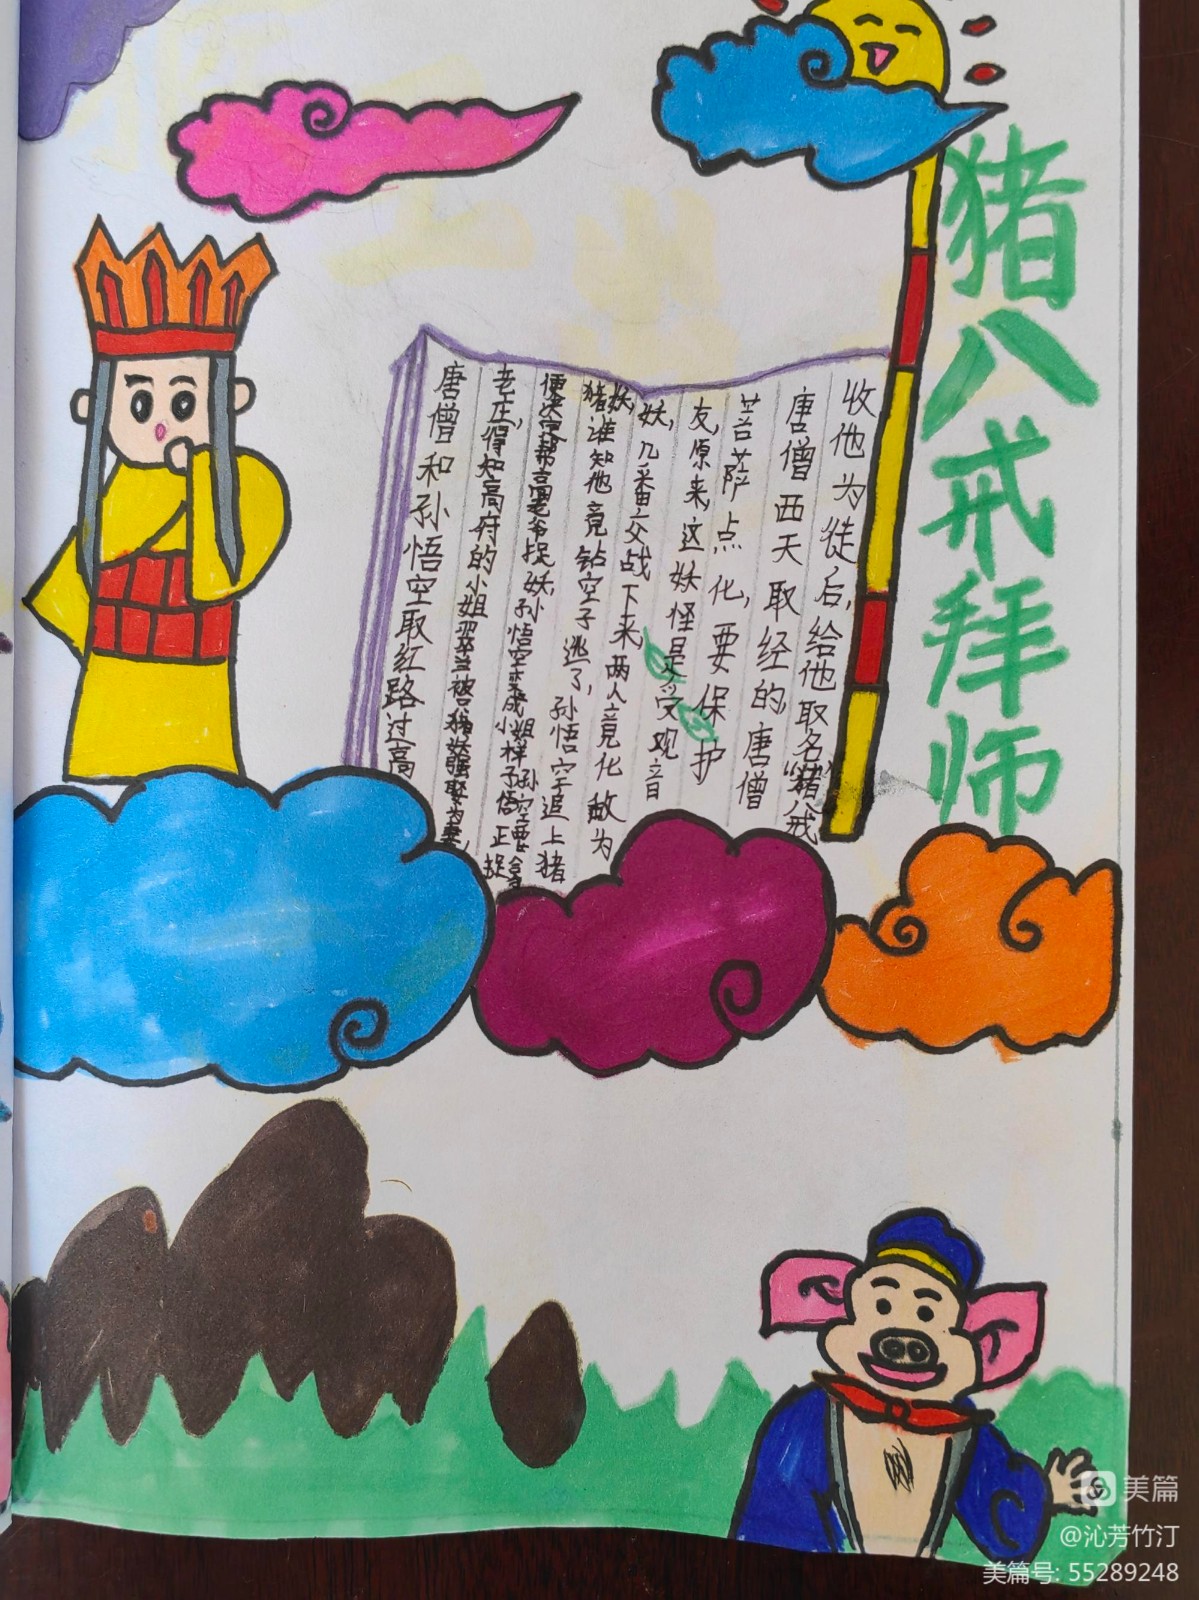 猪八戒拜师
唐僧和孙悟空取红路过高
老庄,得知高府的小姐翠兰被猪妖强娶为妻,
便决定帮高老爷捉妖,孙悟空变成小姐样子
猪妖,谁知他竟钻空子逃了,孙悟空追上猪
妖,几番交战下来,两人竟化敌为
友,原来,这妖怪是受观音
菩萨点化,要保护
唐僧西天取经的唐僧
收他为徒后,给他取名“猪八戒
美篇
@沁芳竹汀
美篇号: 55289248